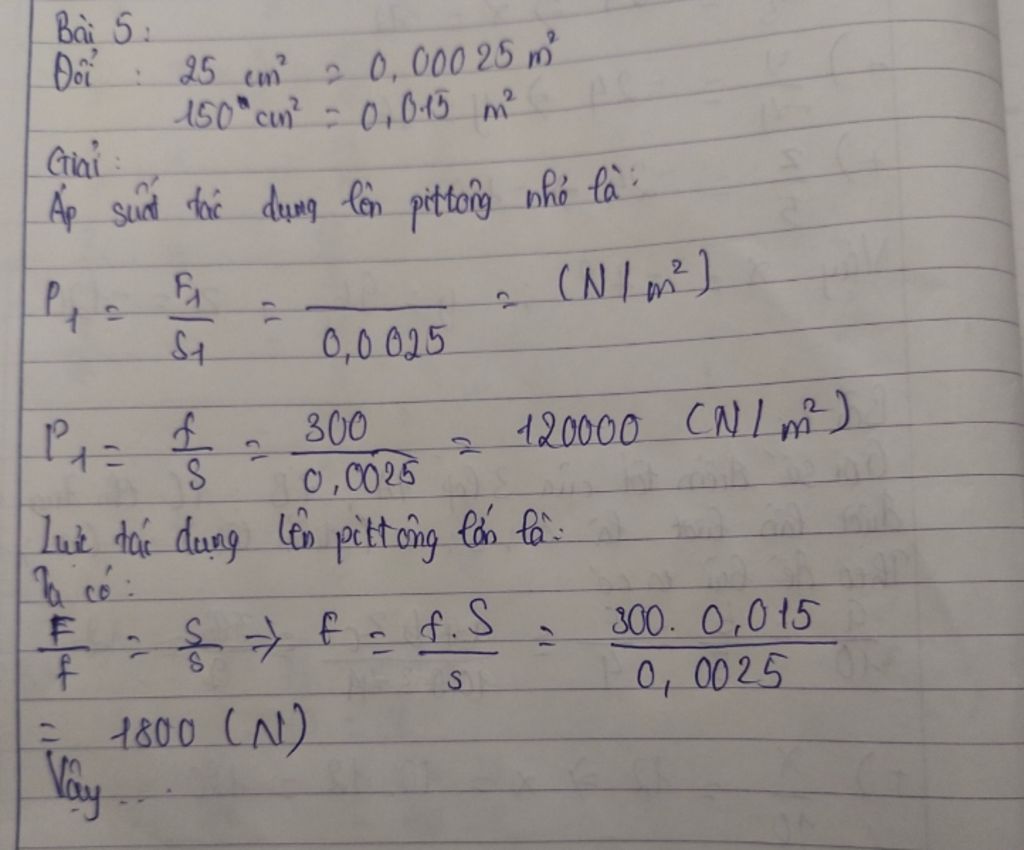 Bài 5:
Đổi : 25 cm² = 0,00025 m²
150 cm² = 0,015 m²
Giải:
Áp suất tác dụng lên pittông nhỏ là:
P₁ = F₁/S₁ = /0,0025 = (N/m²)
P₁ = f/s = 300/0,0025 = 120000 (N/m²)
Lực tác dụng lên pittông lớn là:
Ta có:
F/f = S/s => F = f.S/s = 300. 0,015/0,0025
= 1800 (N)
Vậy ....